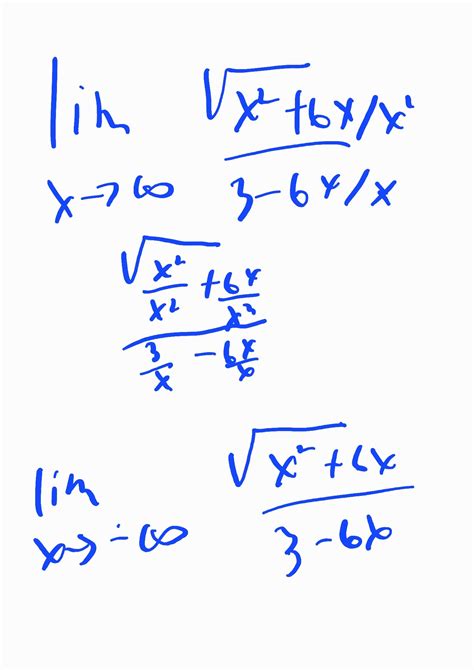 lim √x²+6x/x²
x→∞ 3-6x/x
√x²/x² + 6x/x³
3/x - 6x/x
lim √x²+6x
x→-∞ 3-6x